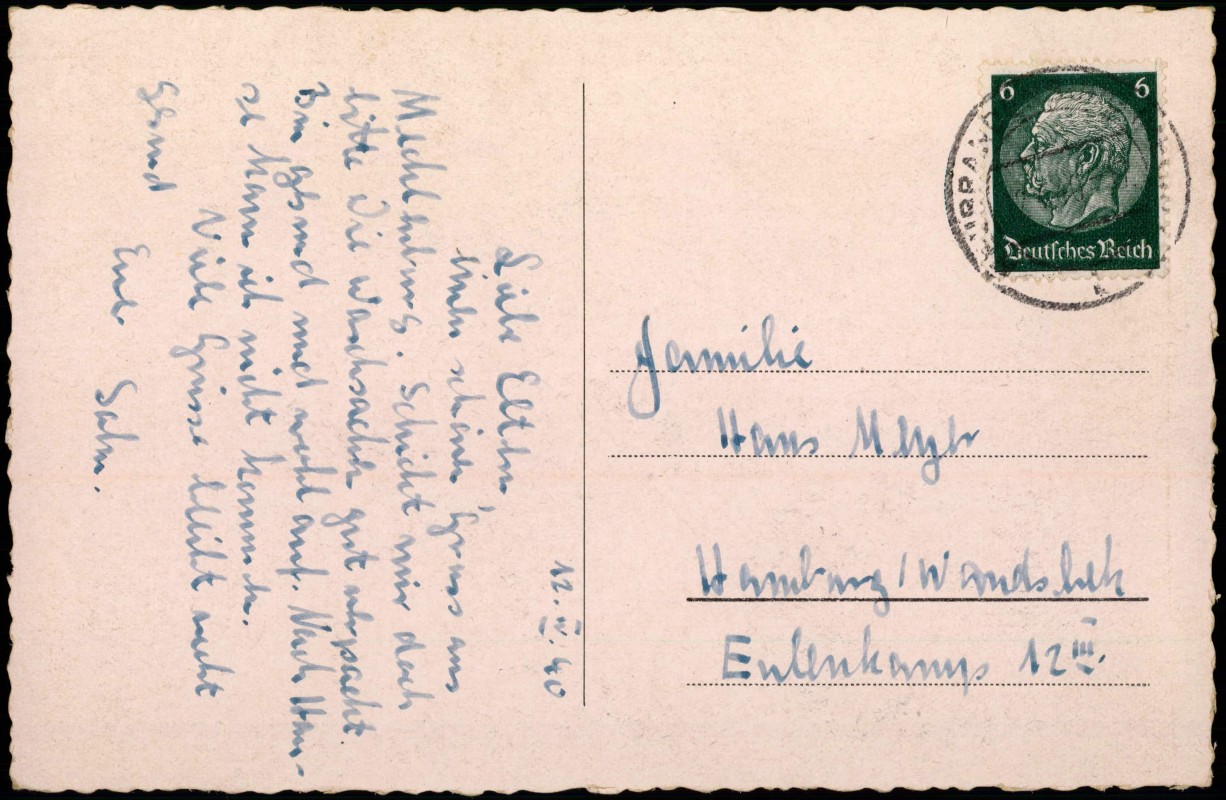 12. IV. 40
Liebe Eltern,
einen schönen Gruss aus
Mecklenburg. Schickt mir doch
bitte die Waschsachen gut verpackt
Bin gesund und wohl auf. Nach Hau-
se kann ich nicht kommen.
Viele Grüsse bleibt recht
gesund
Eure Sohn.
6 6
Deutsches Reich
Familie
Hans Meyer
Hamburg/Wandsbek
Eulenkamp 12 III.